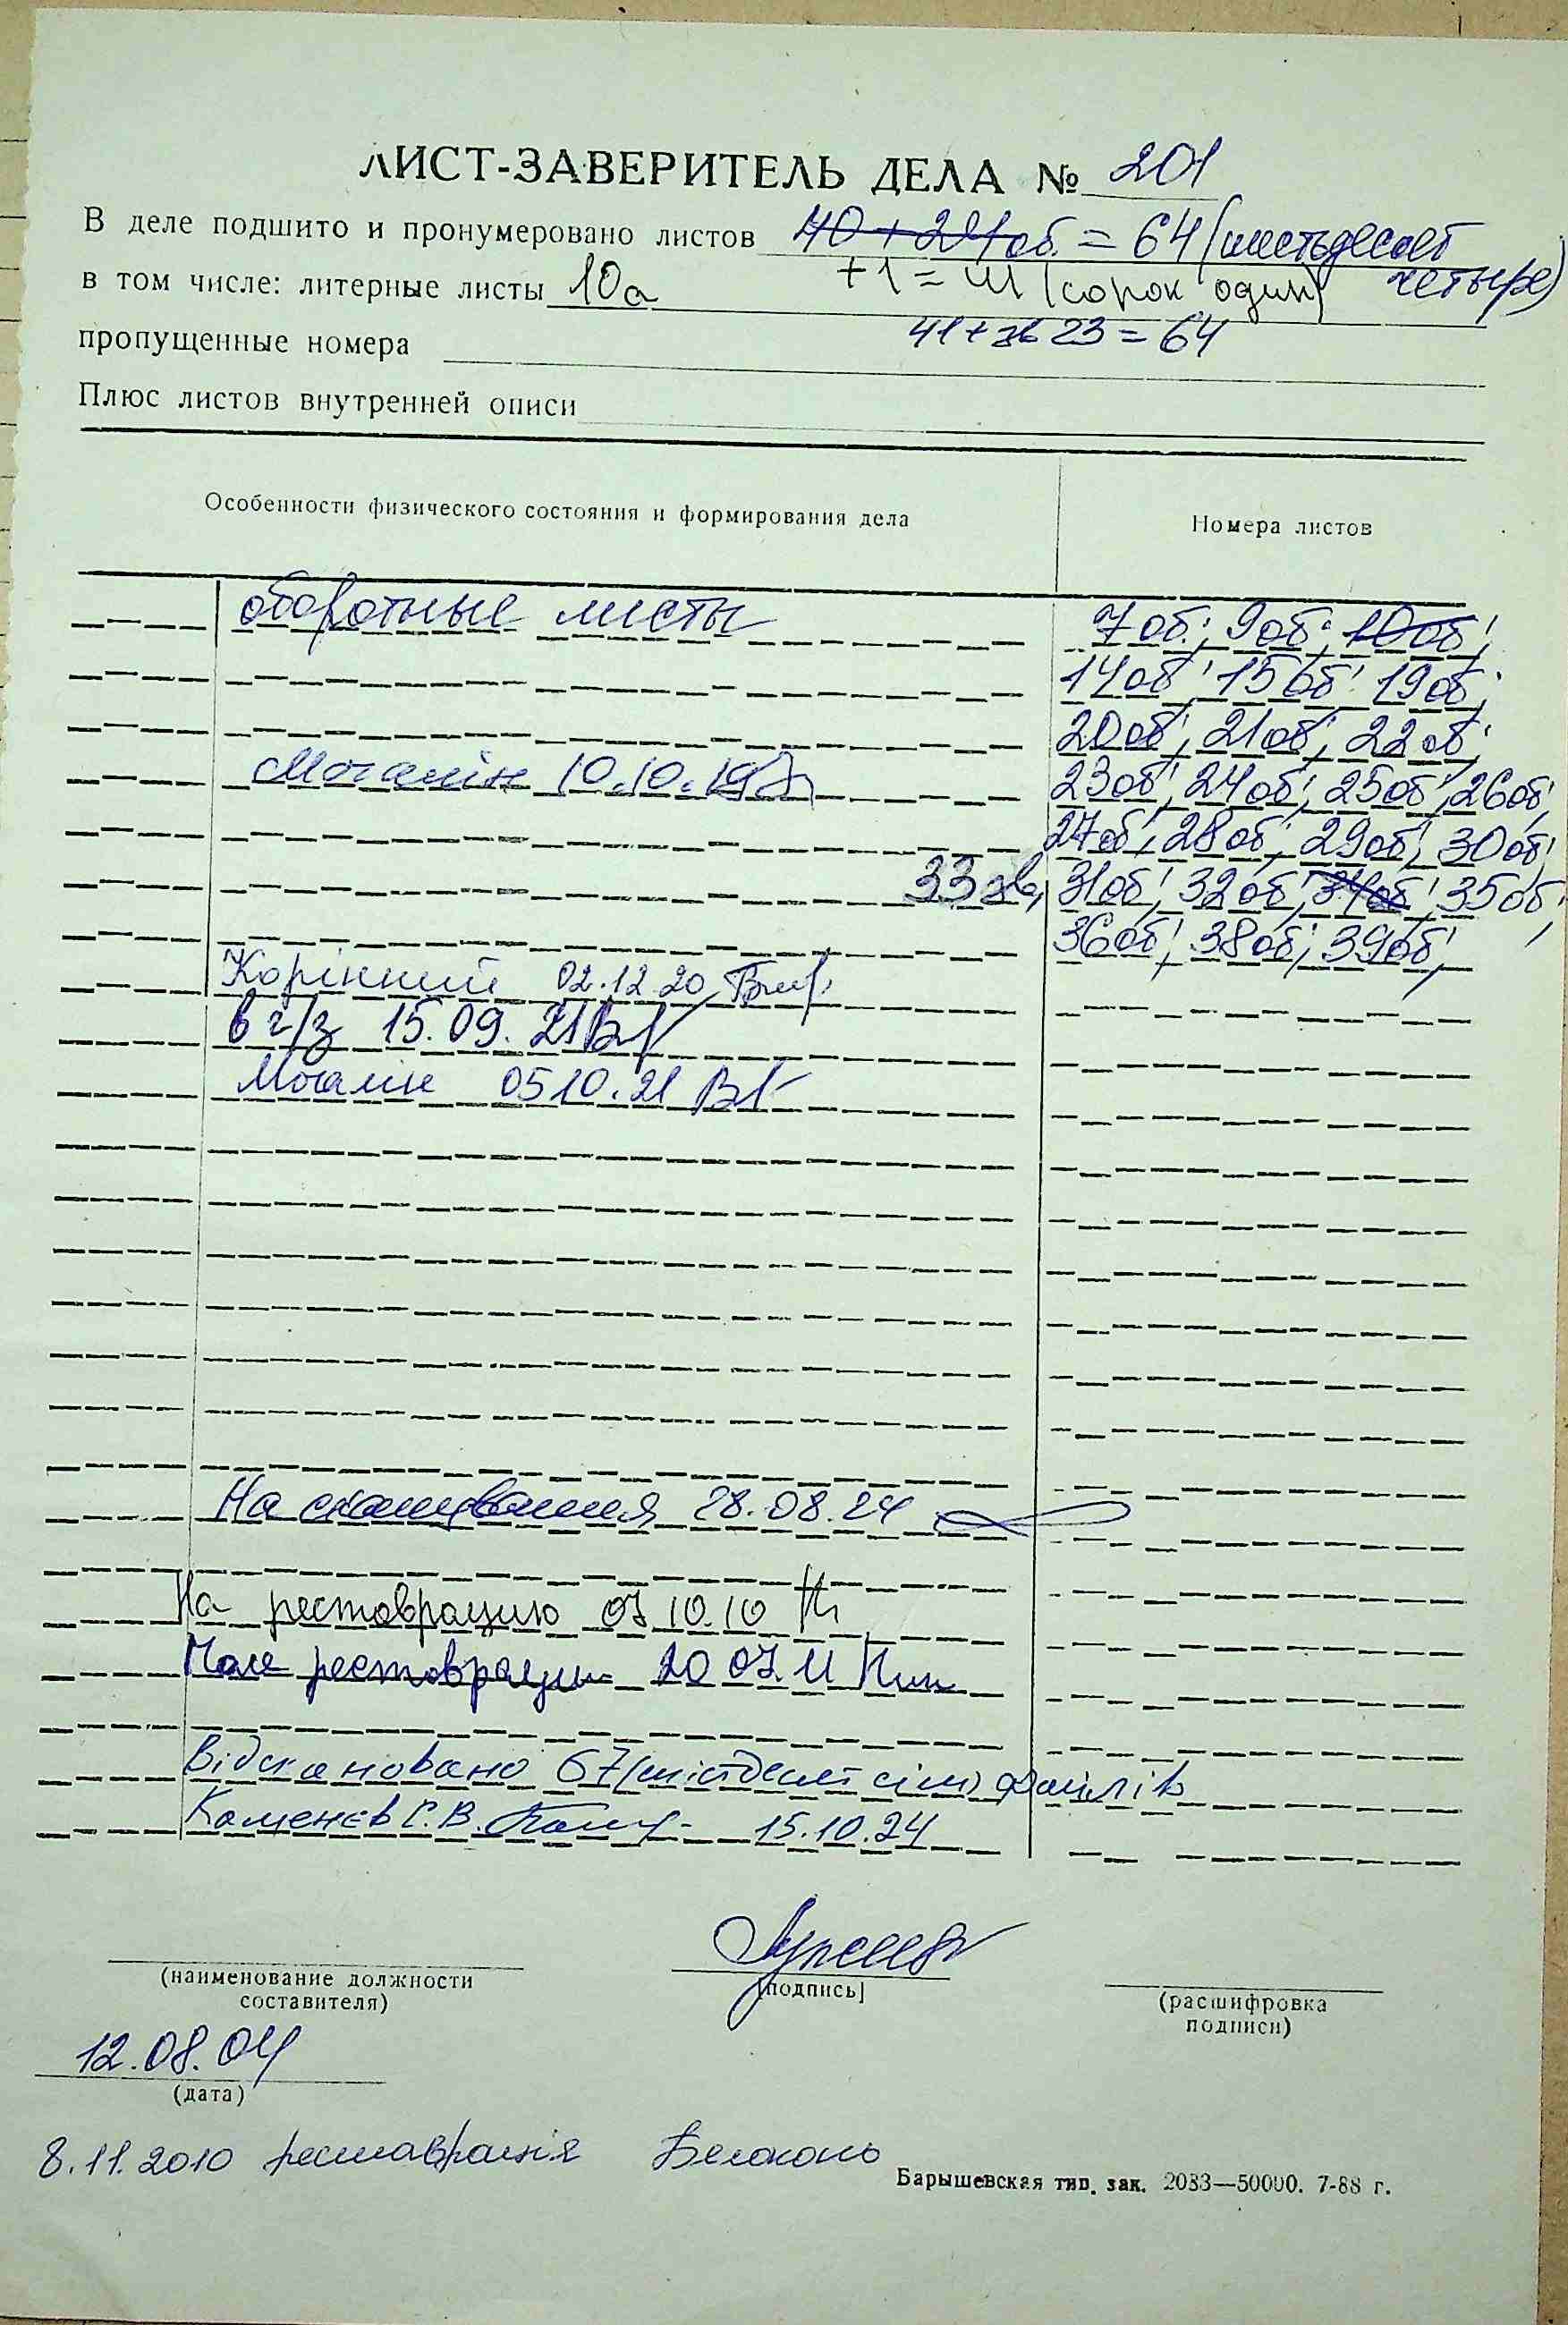 ЛИСТ-ЗАВЕРИТЕЛЬ ДЕЛА № 201
В деле подшито и пронумеровано листов 40 + 24 об. = 64 (шестьдесят четыре)
+1 = 41 (сорок один)
в том числе: литерные листы 10а
41 + зв 23 = 64
пропущенные номера
Плюс листов внутренней описи
Особенности физического состояния и формирования дела
Номера листов
оборотные листы 7об.; 9об; 10об;
14об; 15об; 19об;
20об; 21об; 22об;
10.10.19 23об; 24об; 25об; 26об;
27об; 28об; 29об; 30об;
33 зв, 31об; 32об; 34об; 35об;
36об; 38об; 39об;
Корінний 02.12.20
в г/з 15.09.21 ВГ
05.10.21 ВГ
На сканування 28.08.24
На реставрацию 07.10.10
После реставрации 20.07.11
Відскановано 67 (шістдесят сім) файлів
Каменєв С.В. 15.10.24
(наименование должности
составителя)
(подпись)
(расшифровка
подписи)
12.08.04
(дата)
8.11.2010 реставрація Белоконь
Барышевская тип. зак. 2033—50000. 7-88 г.